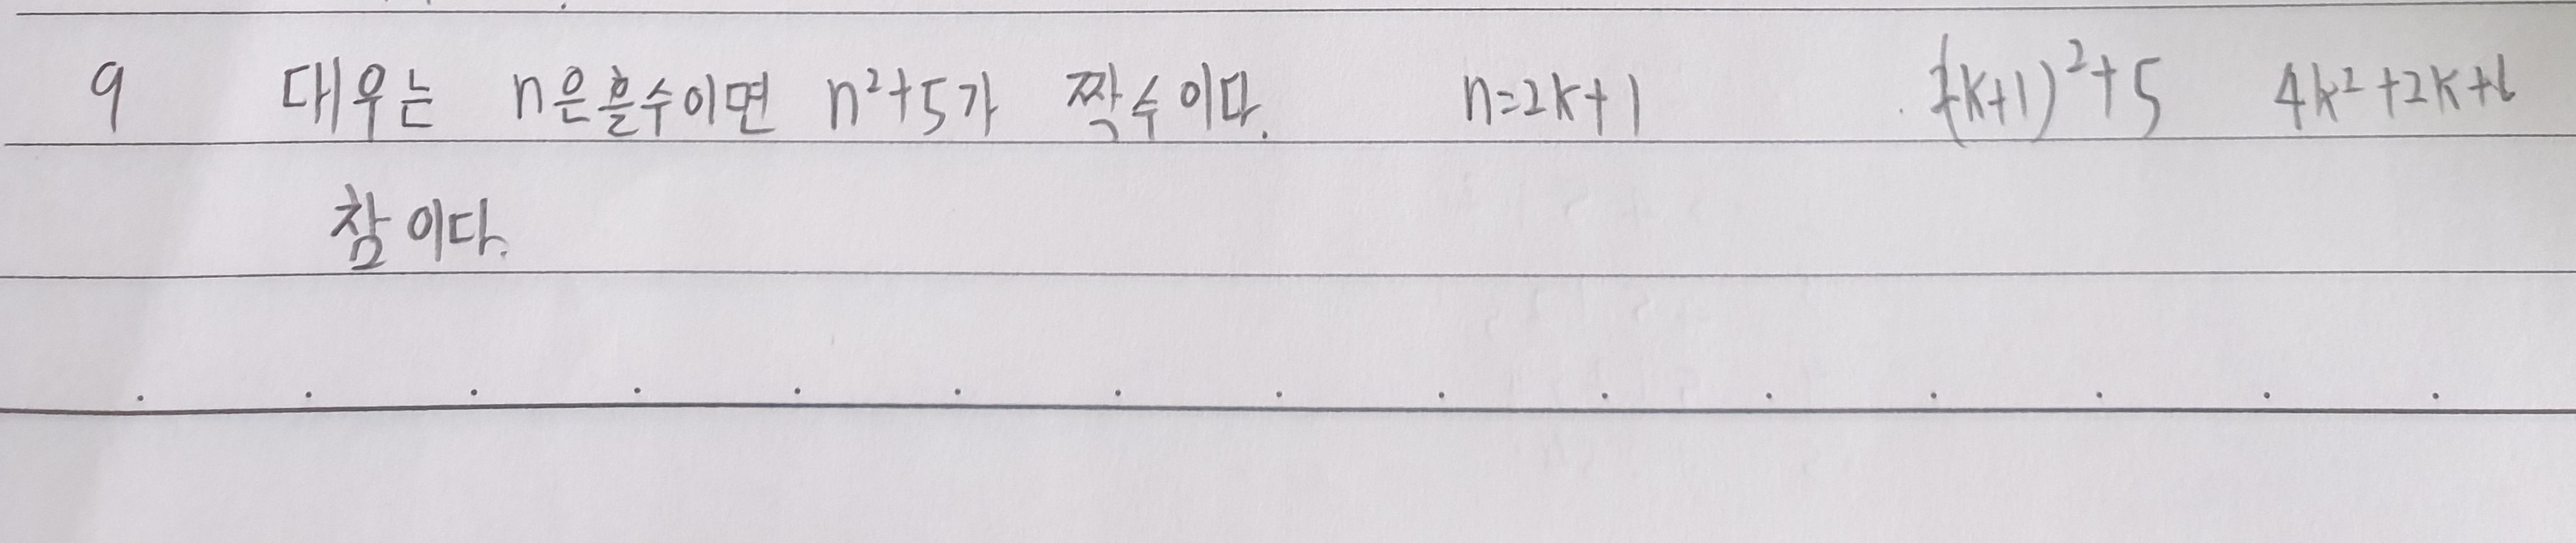 9 대우는 n은홀수이면 n²+5가 짝수이다. n=2k+1 (2k+1)²+5 4k²+2k+6
참이다.